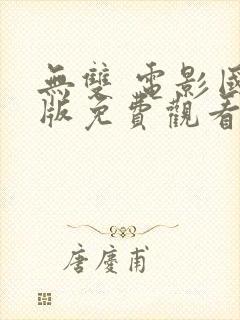 無雙 電影國
版免費觀看
唐慶甫